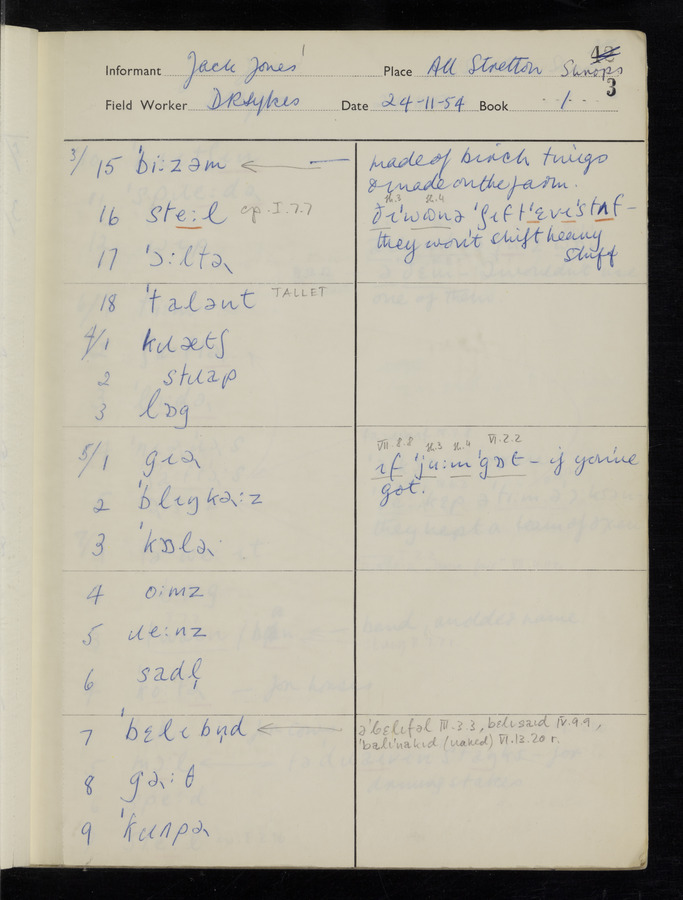 Informant Jack Jones Place All Stretton Shrops 42
Field Worker DR Sykes Date 24-11-54 Book 1 3
3/ 15 ˈbiːzəm ← made of birch twigs
& made on the farm.
16 steːl cp. I.7.7
it.3 it.4
they won't shift heavy stuff
17
18 ˈtalənt TALLET
4/1 kɹætʃ
2 stɹap
3 lɒg
5/1 gɪə
VII.8.8 it.3 it.4 VI.2.2
ɪf ˈjuːm ˈgɒt – if you've
got.
2 ˈblɪŋkəːz
3 ˈkɒlə
4 oːmz
5 ɹeːnz
6 sadḷ
7 ˈbɛlɪbɪnd ← əˈbɛlɪfəl III.3.3, belisaid IV.9.9,
(naked) VI.13.20 r.
8 gəːθ
9 ˈkɹʌpə